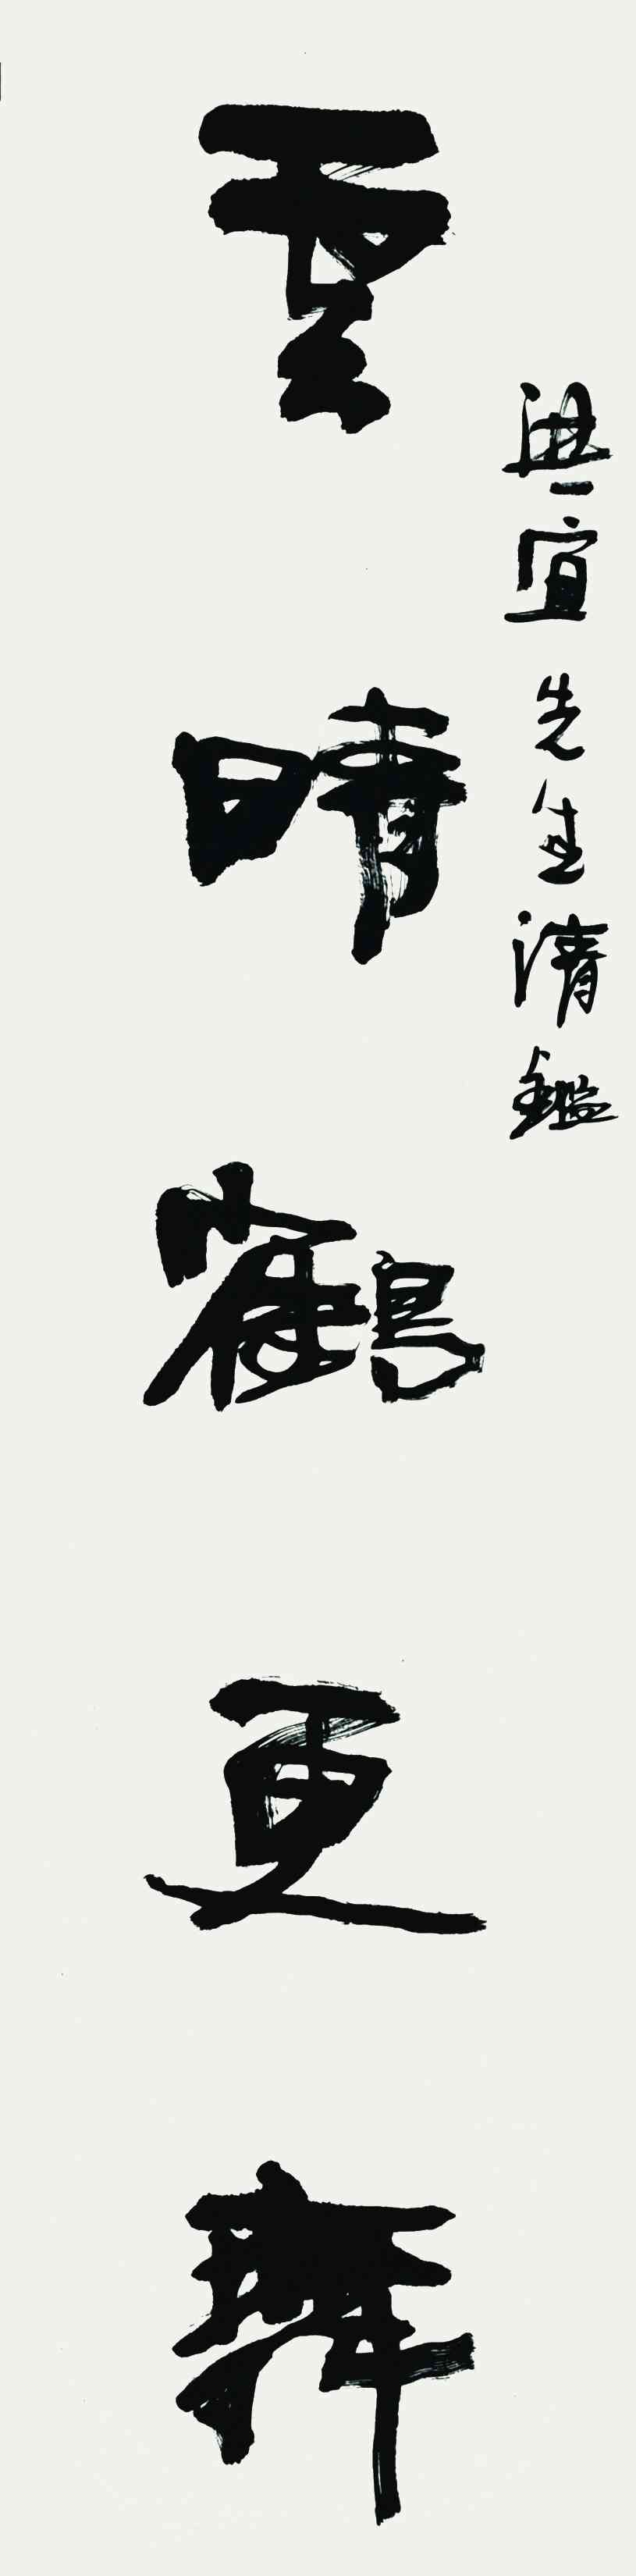 洪宜先生清鑑
雲晴鶴更舞